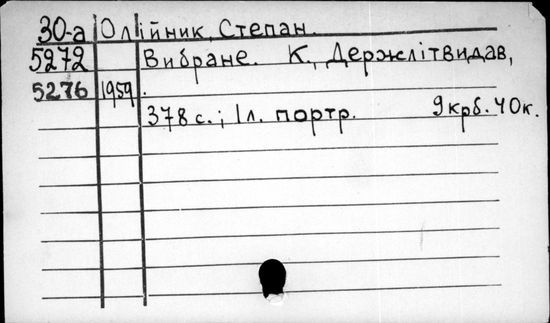 30-а Олійник, Степан.
5272 Вибране. К, Держлітвидав,
5276 1959.
378 с.; 1 л. портр. 9 крб. 40 к.